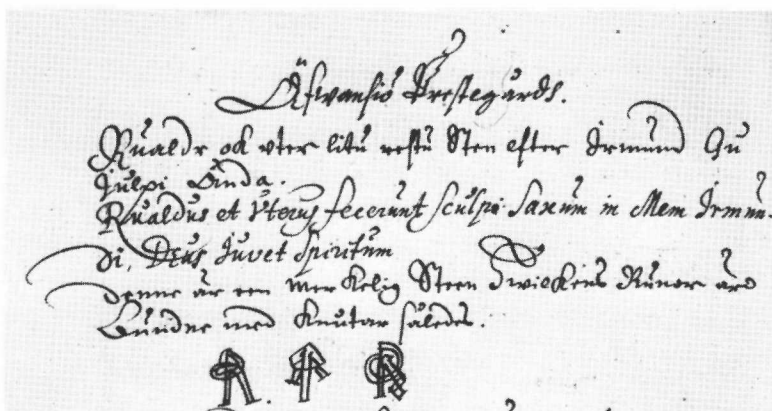 Äfvansiö Prestegårdh.
Rualdr ok vter litu restu Sten efter Irmund Gu
Julpi Anda.
Rualdus et Vterus fecerunt sculpi Saxum in Mem Irmun-
di, Deus Juvet Spiritum
Denne är een merkelig Steen Hwilkens Runor äro
Bundne med Knutar således.